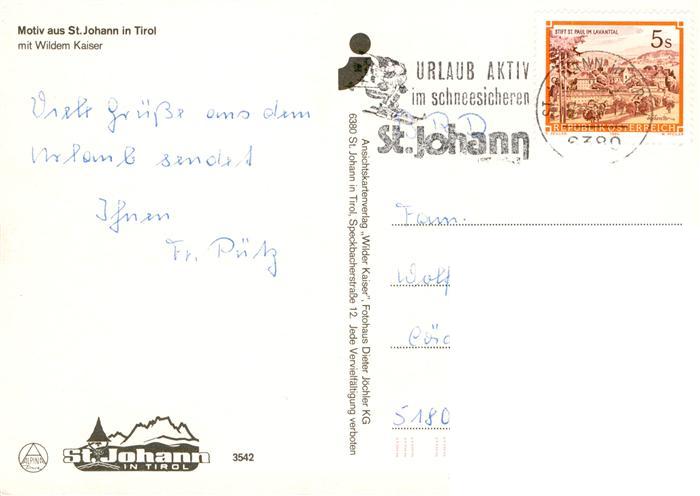 Motiv aus St. Johann in Tirol
mit Wildem Kaiser
Viele Grüße aus dem
Urlaub sendet
Ihnen
Fr. Pütz
ALPINA
St. Johann
IN TIROL
3542
Ansichtskartenverlag „Wilder Kaiser", Fotohaus Dieter Jöchler KG
6380 St. Johann in Tirol, Speckbacherstraße 12. Jede Vervielfältigung verboten
URLAUB AKTIV
im schneesicheren
St. Johann
STIFT ST. PAUL IM LAVANTTAL
5 s
REPUBLIK ÖSTERREICH
6380
BRD
Fam.
Wolf
5180